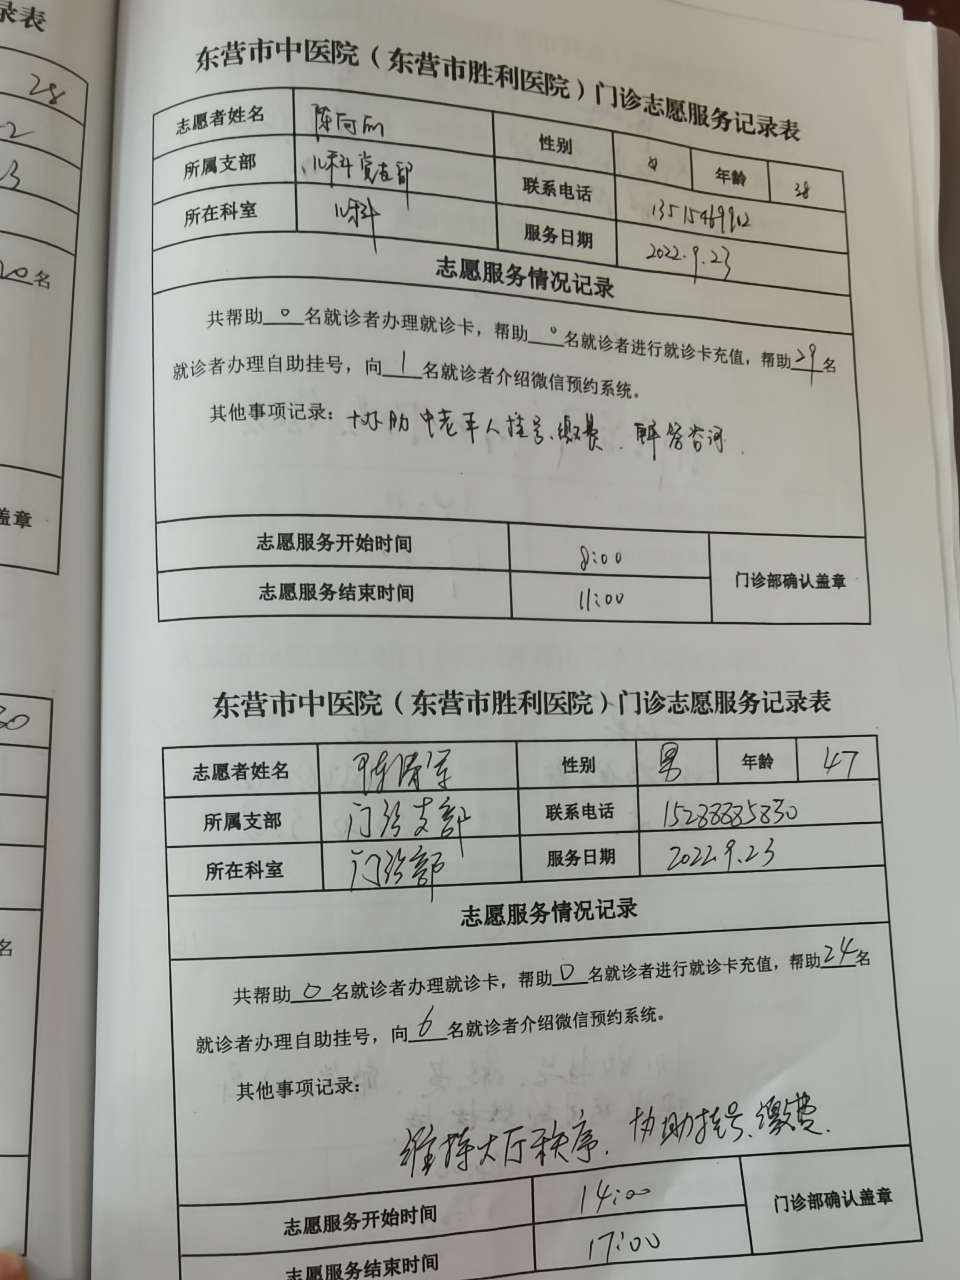 录表
28
2
3
20名
盖章
30
名
东营市中医院（东营市胜利医院）门诊志愿服务记录表
志愿者姓名 性别 女 年龄 38
所属支部 儿科党支部 联系电话 13515469912
所在科室 儿科 服务日期 2022.9.23
志愿服务情况记录
共帮助0名就诊者办理就诊卡，帮助0名就诊者进行就诊卡充值，帮助29名
就诊者办理自助挂号，向1名就诊者介绍微信预约系统。
其他事项记录：协助中老年人挂号、缴费、解答咨询.
志愿服务开始时间 8:00
志愿服务结束时间 11:00
门诊部确认盖章
东营市中医院（东营市胜利医院）门诊志愿服务记录表
志愿者姓名 性别 男 年龄 47
所属支部 门诊支部 联系电话 15288885830
所在科室 门诊部 服务日期 2022.9.23
志愿服务情况记录
共帮助0名就诊者办理就诊卡，帮助0名就诊者进行就诊卡充值，帮助24名
就诊者办理自助挂号，向6名就诊者介绍微信预约系统。
其他事项记录：
维持大厅秩序、协助挂号、缴费.
志愿服务开始时间 14:00
志愿服务结束时间 17:00
门诊部确认盖章